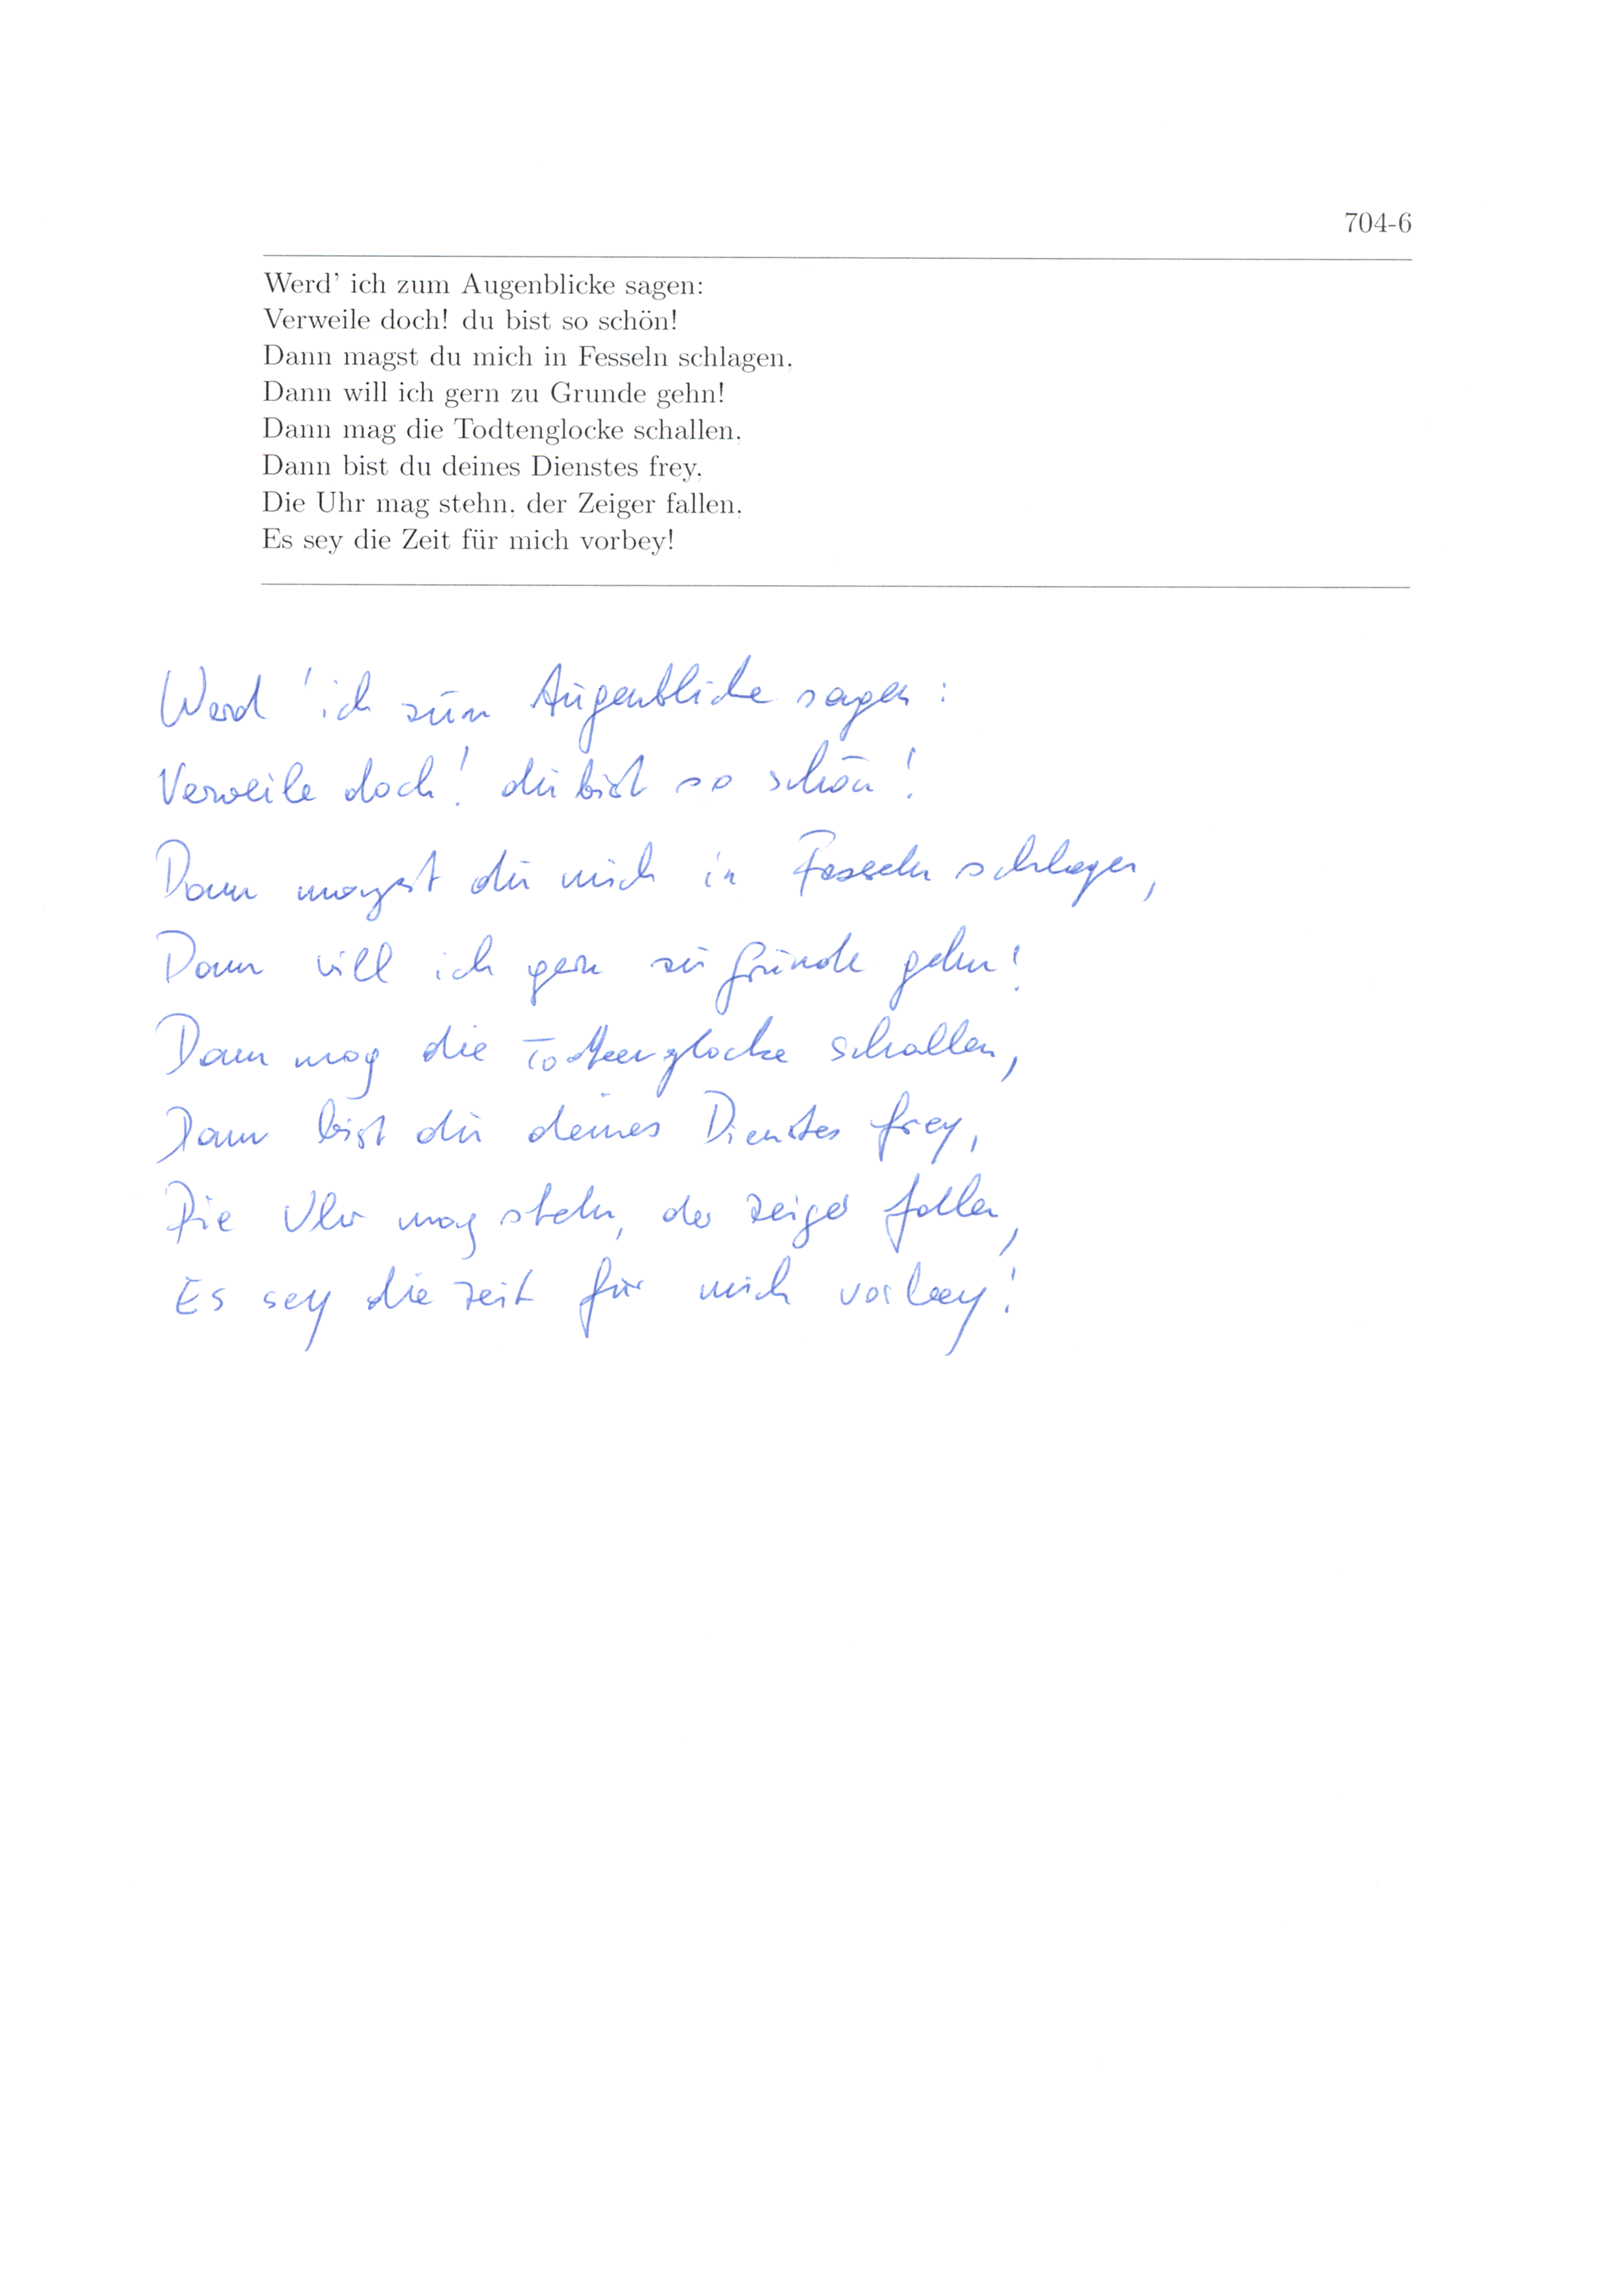 704-6
Werd' ich zum Augenblicke sagen:
Verweile doch! du bist so schön!
Dann magst du mich in Fesseln schlagen,
Dann will ich gern zu Grunde gehn!
Dann mag die Todtenglocke schallen,
Dann bist du deines Dienstes frey,
Die Uhr mag stehn, der Zeiger fallen,
Es sey die Zeit für mich vorbey!
Werd' ich zum Augenblicke sagen:
Verweile doch! du bist so schön!
Dann magst du mich in Fesseln schlagen,
Dann will ich gern zu Grunde gehn!
Dann mag die Todtenglocke schallen,
Dann bist du deines Dienstes frey,
Die Uhr mag stehn, der Zeiger fallen,
Es sey die Zeit für mich vorbey!